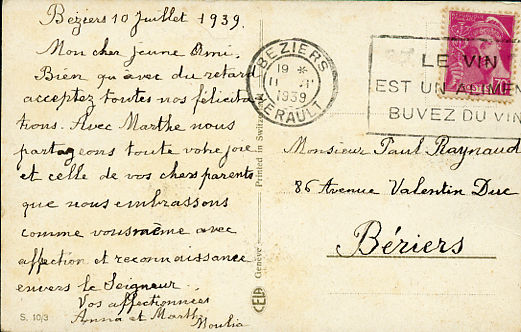 Béziers 10 Juillet 1939.
Mon cher jeune Ami.
Bien qu'avec du retard
acceptez toutes nos félicita
tions. Avec Marthe nous
partageons toute votre joie
et celle de vos chers parents
que nous embrassons
comme vous même avec
affection et reconnaissance
envers le Seigneur.
Vos affectionnées
Anna et Marthe
S. 10/3
CELA Genève
Printed in Switz
BEZIERS
19 *
11 -7
1939
HERAULT
LE VIN
EST UN ALIMEN
BUVEZ DU VIN
70
POSTES
Monsieur Paul Raynaud
86 Avenue Valentin Duc
Béziers